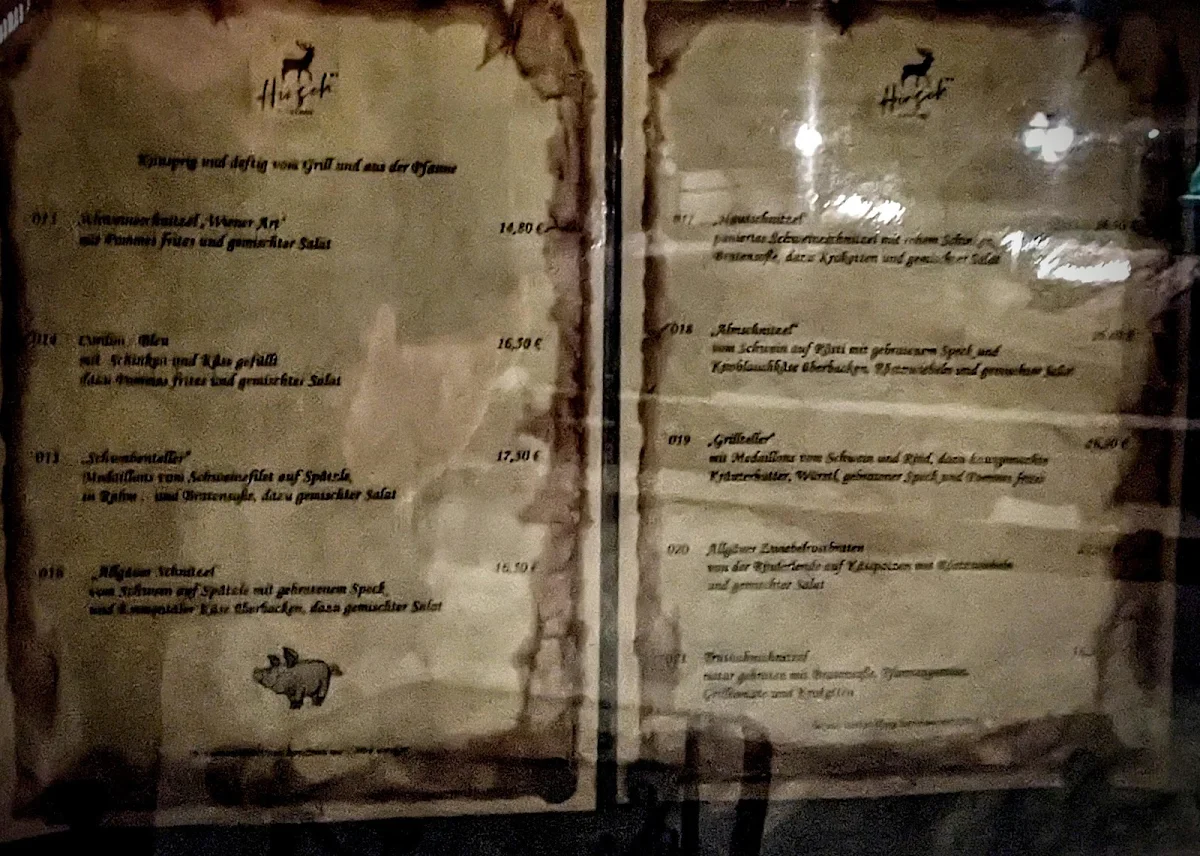 Hirsch
Knusprig und deftig vom Grill und aus der Pfanne
013 Schweineschnitzel „Wiener Art“ 14,80 €
mit Pommes frites und gemischter Salat
014 Cordon Bleu 16,50 €
mit Schinken und Käse gefüllt
dazu Pommes frites und gemischter Salat
015 „Schwabenteller“ 17,50 €
Medaillons vom Schweinefilet auf Spätzle,
in Rahm- und Bratensoße, dazu gemischter Salat
016 „Allgäuer Schnitzel“ 16,50 €
vom Schwein auf Spätzle mit gebratenem Speck
und Emmentaler Käse überbacken, dazu gemischter Salat
Hirsch
017
paniertes Schweineschnitzel mit
Bratensoße, dazu Kroketten und gemischter Salat
018 „Almschnitzel“
vom Schwein auf Rösti mit gebratenem Speck und
Knoblauchkäse überbacken, Röstzwiebeln und gemischter Salat
019 „Grillteller“
mit Medaillons vom Schwein und Rind, dazu hausgemachte
Kräuterbutter, Würstl, gebratener Speck und Pommes frites
020 Allgäuer Zwiebelrostbraten
von der Rinderlende auf Kässpatzen mit Röstzwiebeln
und gemischter Salat
021
natur gebraten mit Bratensoße, Pfannengemüse,
Grilltomate und Kroketten